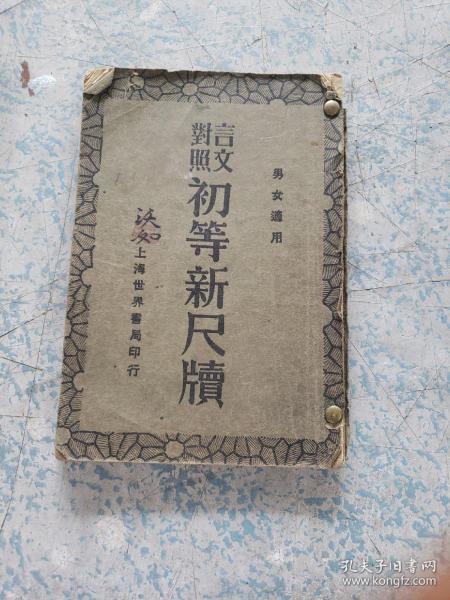 男女適用
言文
對照
初等新尺牘
上海世界書局印行
孔夫子旧书网
www.kongfz.com